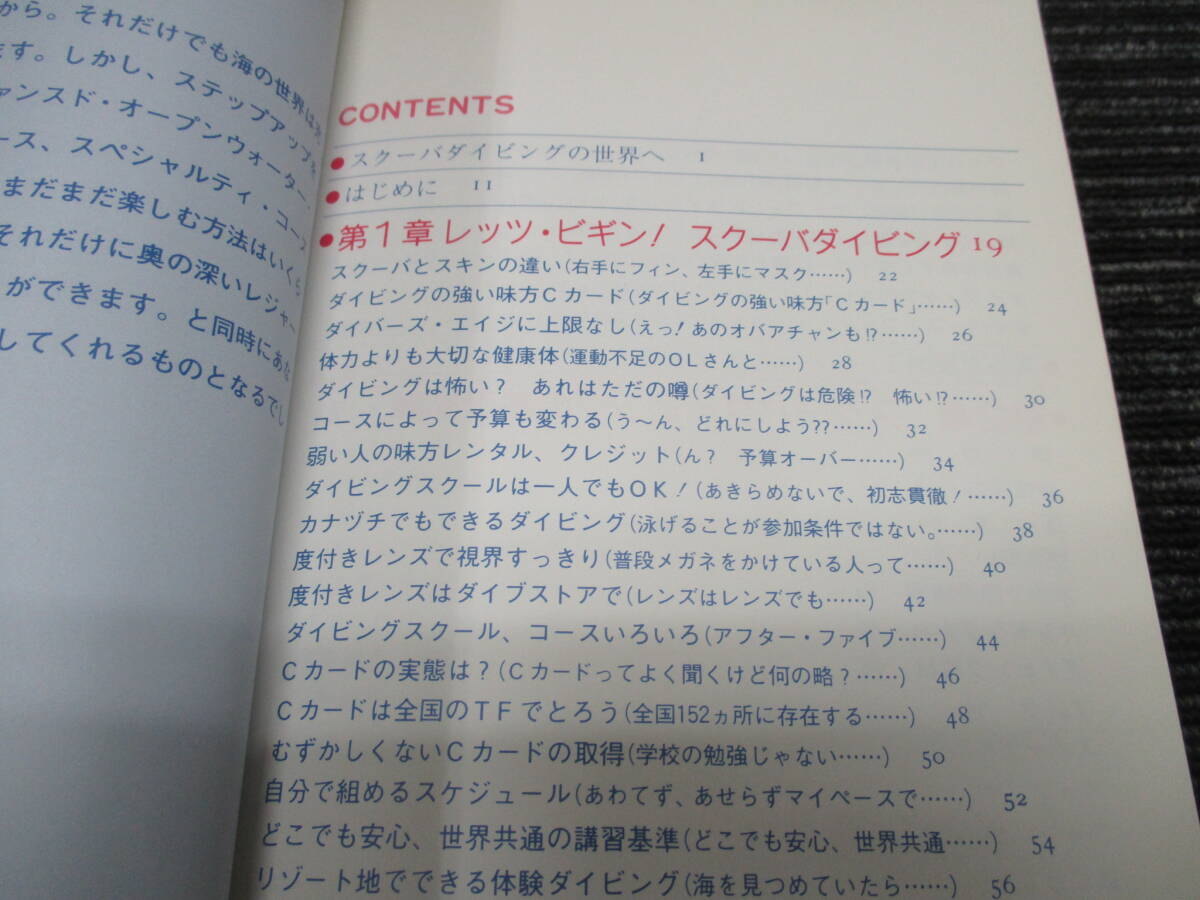 から。それだけでも海の世界は
ます。しかし、ステップアップ
ァンスド・オープンウォーター
ース、スペシャルティ・コース
まだまだ楽しむ方法はいくら
それだけに奥の深いレジャー
ができます。と同時にあな
してくれるものとなるでし
CONTENTS
●スクーバダイビングの世界へ 1
●はじめに 11
●第1章 レッツ・ビギン! スクーバダイビング 19
スクーバとスキンの違い(右手にフィン、左手にマスク……) 22
ダイビングの強い味方Cカード(ダイビングの強い味方「Cカード」……) 24
ダイバーズ・エイジに上限なし(えっ!あのオバアチャンも!?……) 26
体力よりも大切な健康体(運動不足のOLさんと……) 28
ダイビングは怖い? あれはただの噂(ダイビングは危険!? 怖い!?……) 30
コースによって予算も変わる(う〜ん、どれにしよう??……) 32
弱い人の味方レンタル、クレジット(ん? 予算オーバー……) 34
ダイビングスクールは一人でもOK!(あきらめないで、初志貫徹!……) 36
カナヅチでもできるダイビング(泳げることが参加条件ではない。……) 38
度付きレンズで視界すっきり(普段メガネをかけている人って……) 40
度付きレンズはダイブストアで(レンズはレンズでも……) 42
ダイビングスクール、コースいろいろ(アフター・ファイブ……) 44
Cカードの実態は?(Cカードってよく聞くけど何の略?……) 46
Cカードは全国のTFでとろう(全国152ヵ所に存在する……) 48
むずかしくないCカードの取得(学校の勉強じゃない……) 50
自分で組めるスケジュール(あわてず、あせらずマイペースで……) 52
どこでも安心、世界共通の講習基準(どこでも安心、世界共通……) 54
リゾート地でできる体験ダイビング(海を見つめていたら……) 56